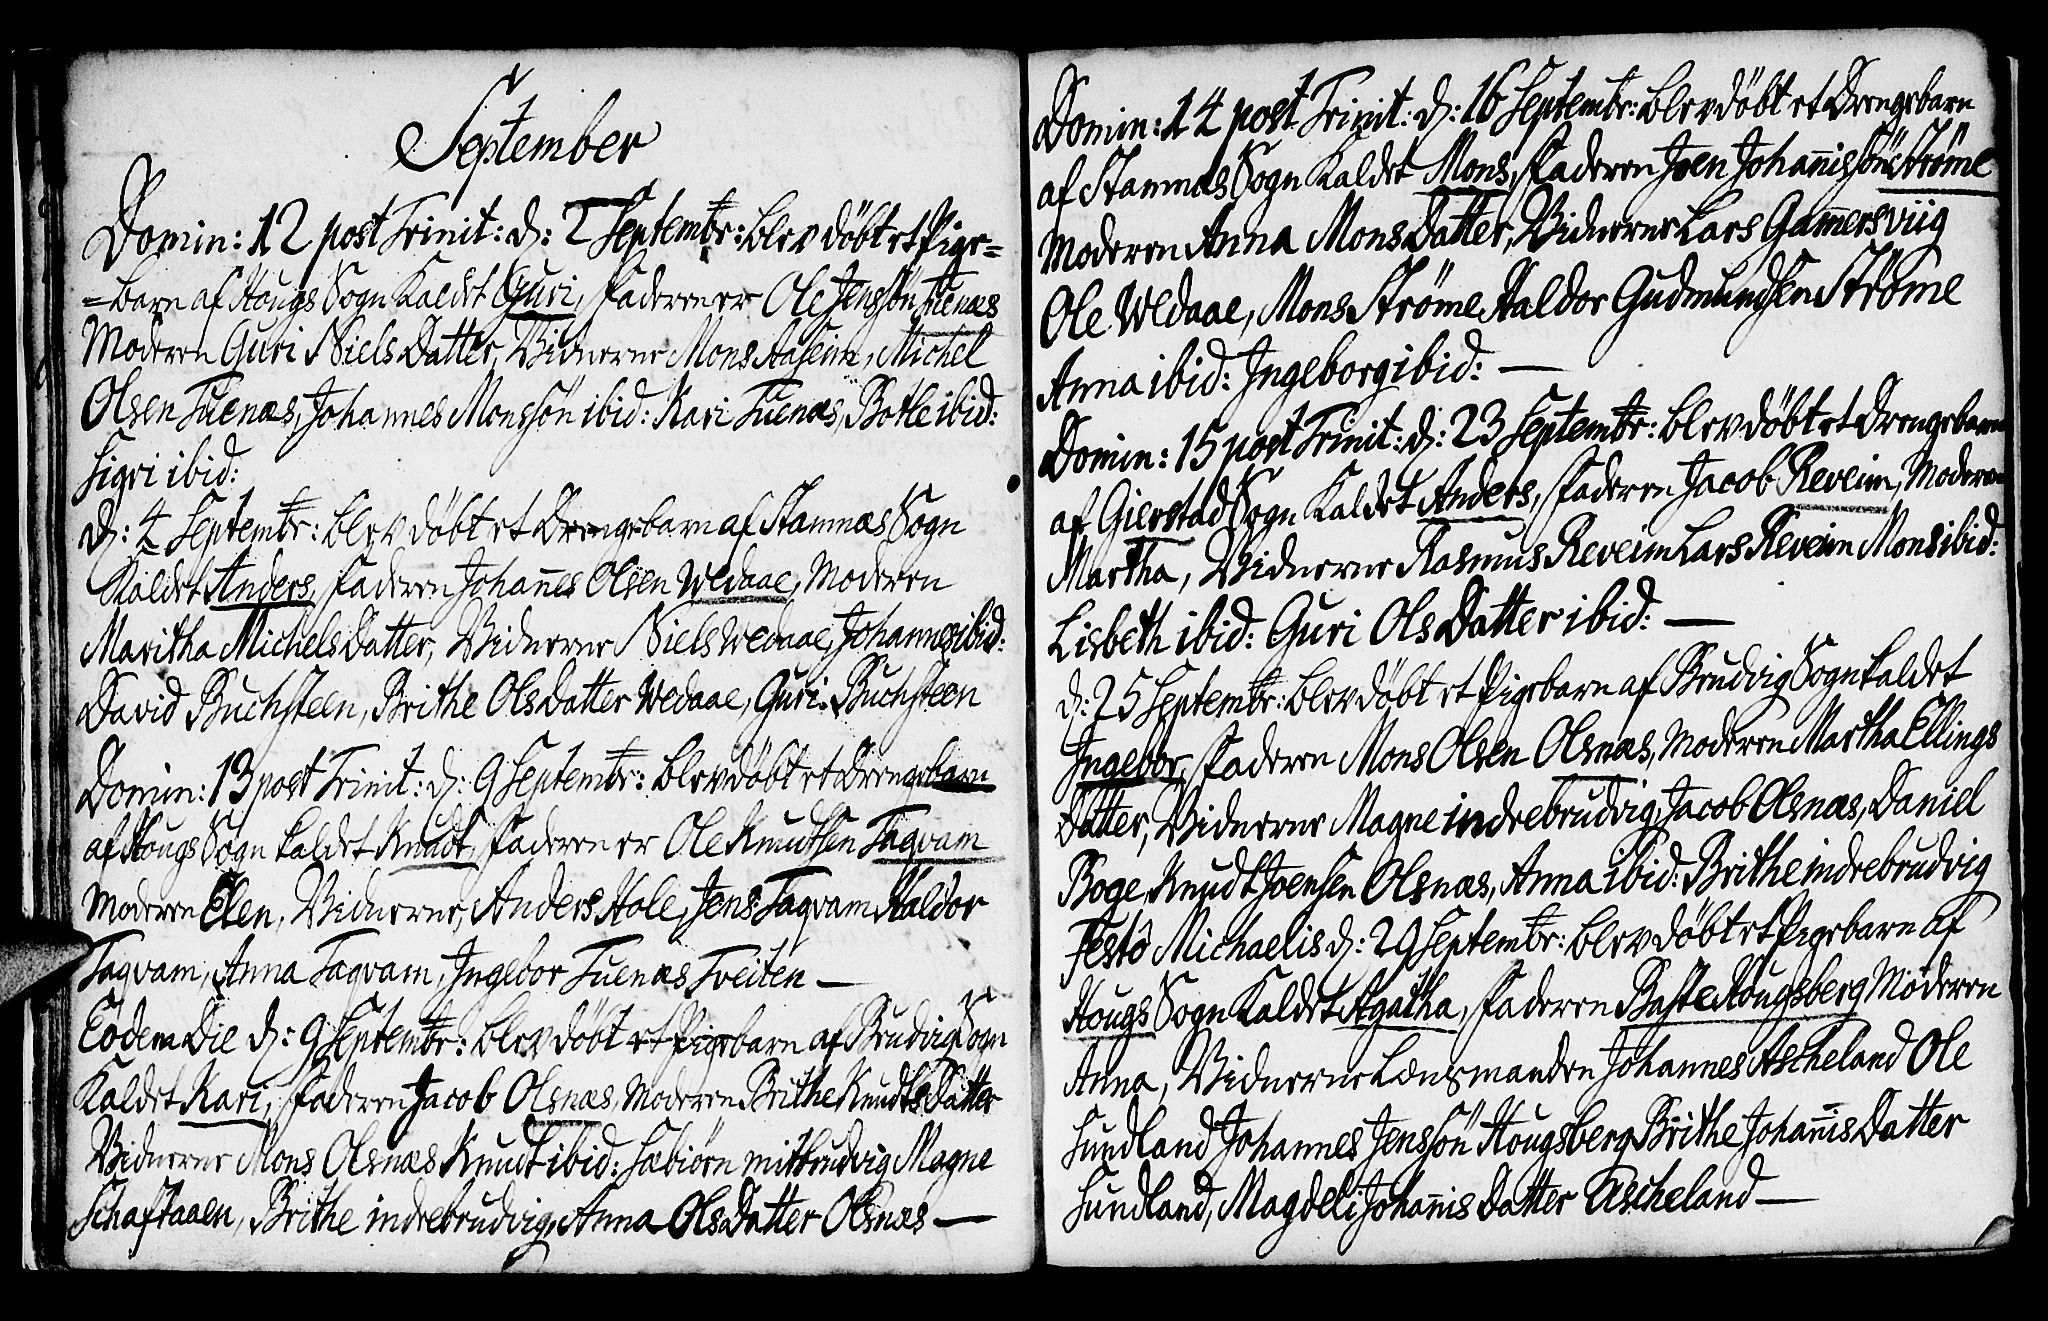 September
Domin: 12 post Trinit: d: 2 Septembr: blev döbt et Pige=
=barn af Hougs Sogn Kaldet Guri, Faderen er Ole Jenssön Tuenæs
Moderen Guri Niels Datter, Vidnerne Mons Aaseim, Michel
Olsen Tuenæs, Johannes Monssön ibid: Kari Tuenæs, Botle ibid:
Sigri ibid:
d: 4 Septembr: blev döbt et Drengebarn af Stamnæs Sogn
Kaldet Anders, Faderen Johañes Olsen Wedaae, Moderen
Maritha Michels Datter, Vidnerne Niels Wedaae, Johannes ibid:
David Buchsteen, Brithe Ols Datter Wedaae, Guri Buchsteen
Domin: 13 post Trinit: d: 9 Septembr: blev döbt et Drengebarn
af Hougs Sogn kaldet Knudt, Faderen er Ole Knudtsen Tagvam
Moderen Elen, Vidnerne, Anders Hole, Jens Tagvam Haldor
Tagvam, Anna Tagvam, Ingebor Tuenæs Tveiten —
Eodem Die d: 9 Septembr: blev döbt et Pigebarn af Brudvig Sogn
Kaldet Kari, Faderen Jacob Olsnæs, Moderen Brithe Knudts Datter
Vidnerne Mons Olsnæs Knudt ibid: Sæbiörn mitbrudvig Magne
Schaftaaen, Brithe indrebrudvig, Anna Ols Datter Olsnæs —
Domin: 14 post Trinit: d: 16 Septembr: blev döbt et Drengebarn
af Stamnæs Sogn Kaldet Mons, Faderen Joen Johañissön Ströme
Moderen Anna Mons Datter, Vidnerne Lars Gam̃ersviig
Ole Wedaae, Mons Ströme Haldor Gudmundsen Ströme
Anna ibid: Ingeborg ibid: —
Domin: 15 post Trinit: d: 23 Septembr: blev döbt et Drengebarn
af Gierstad Sogn Kaldet Anders, Faderen Jacob Reveim, Moderen
Martha, Vidnerne Rasmus Reveim Lars Reveim Mons ibid:
Lisbeth ibid: Guri Ols Datter ibid: —
d: 25 Septembr: blev döbt et Pigebarn af Brudvig Sogn kaldet
Ingebor, Faderen Mons Olsen Olsnæs, Moderen Martha Ellings
Datter, Vidnerne Magne indrebrudvig, Jacob Olsnæs, Daniel
Boge, Knudt Joensen Olsnæs, Anna ibid: Brithe indrebrudvig
Festô Michaelis d: 29 Septembr: blev döbt et Pigebarn af
Hougs Sogn Kaldet Agatha, Faderen Baste Hougsberg Moderen
Anna, Vidnerne Lænsmanden Johannes Ascheland Ole
Sundland Johannes Jenssön Hougsberg Brithe Johañis Datter
Sundland, Magdeli Johañis Datter Ascheland —